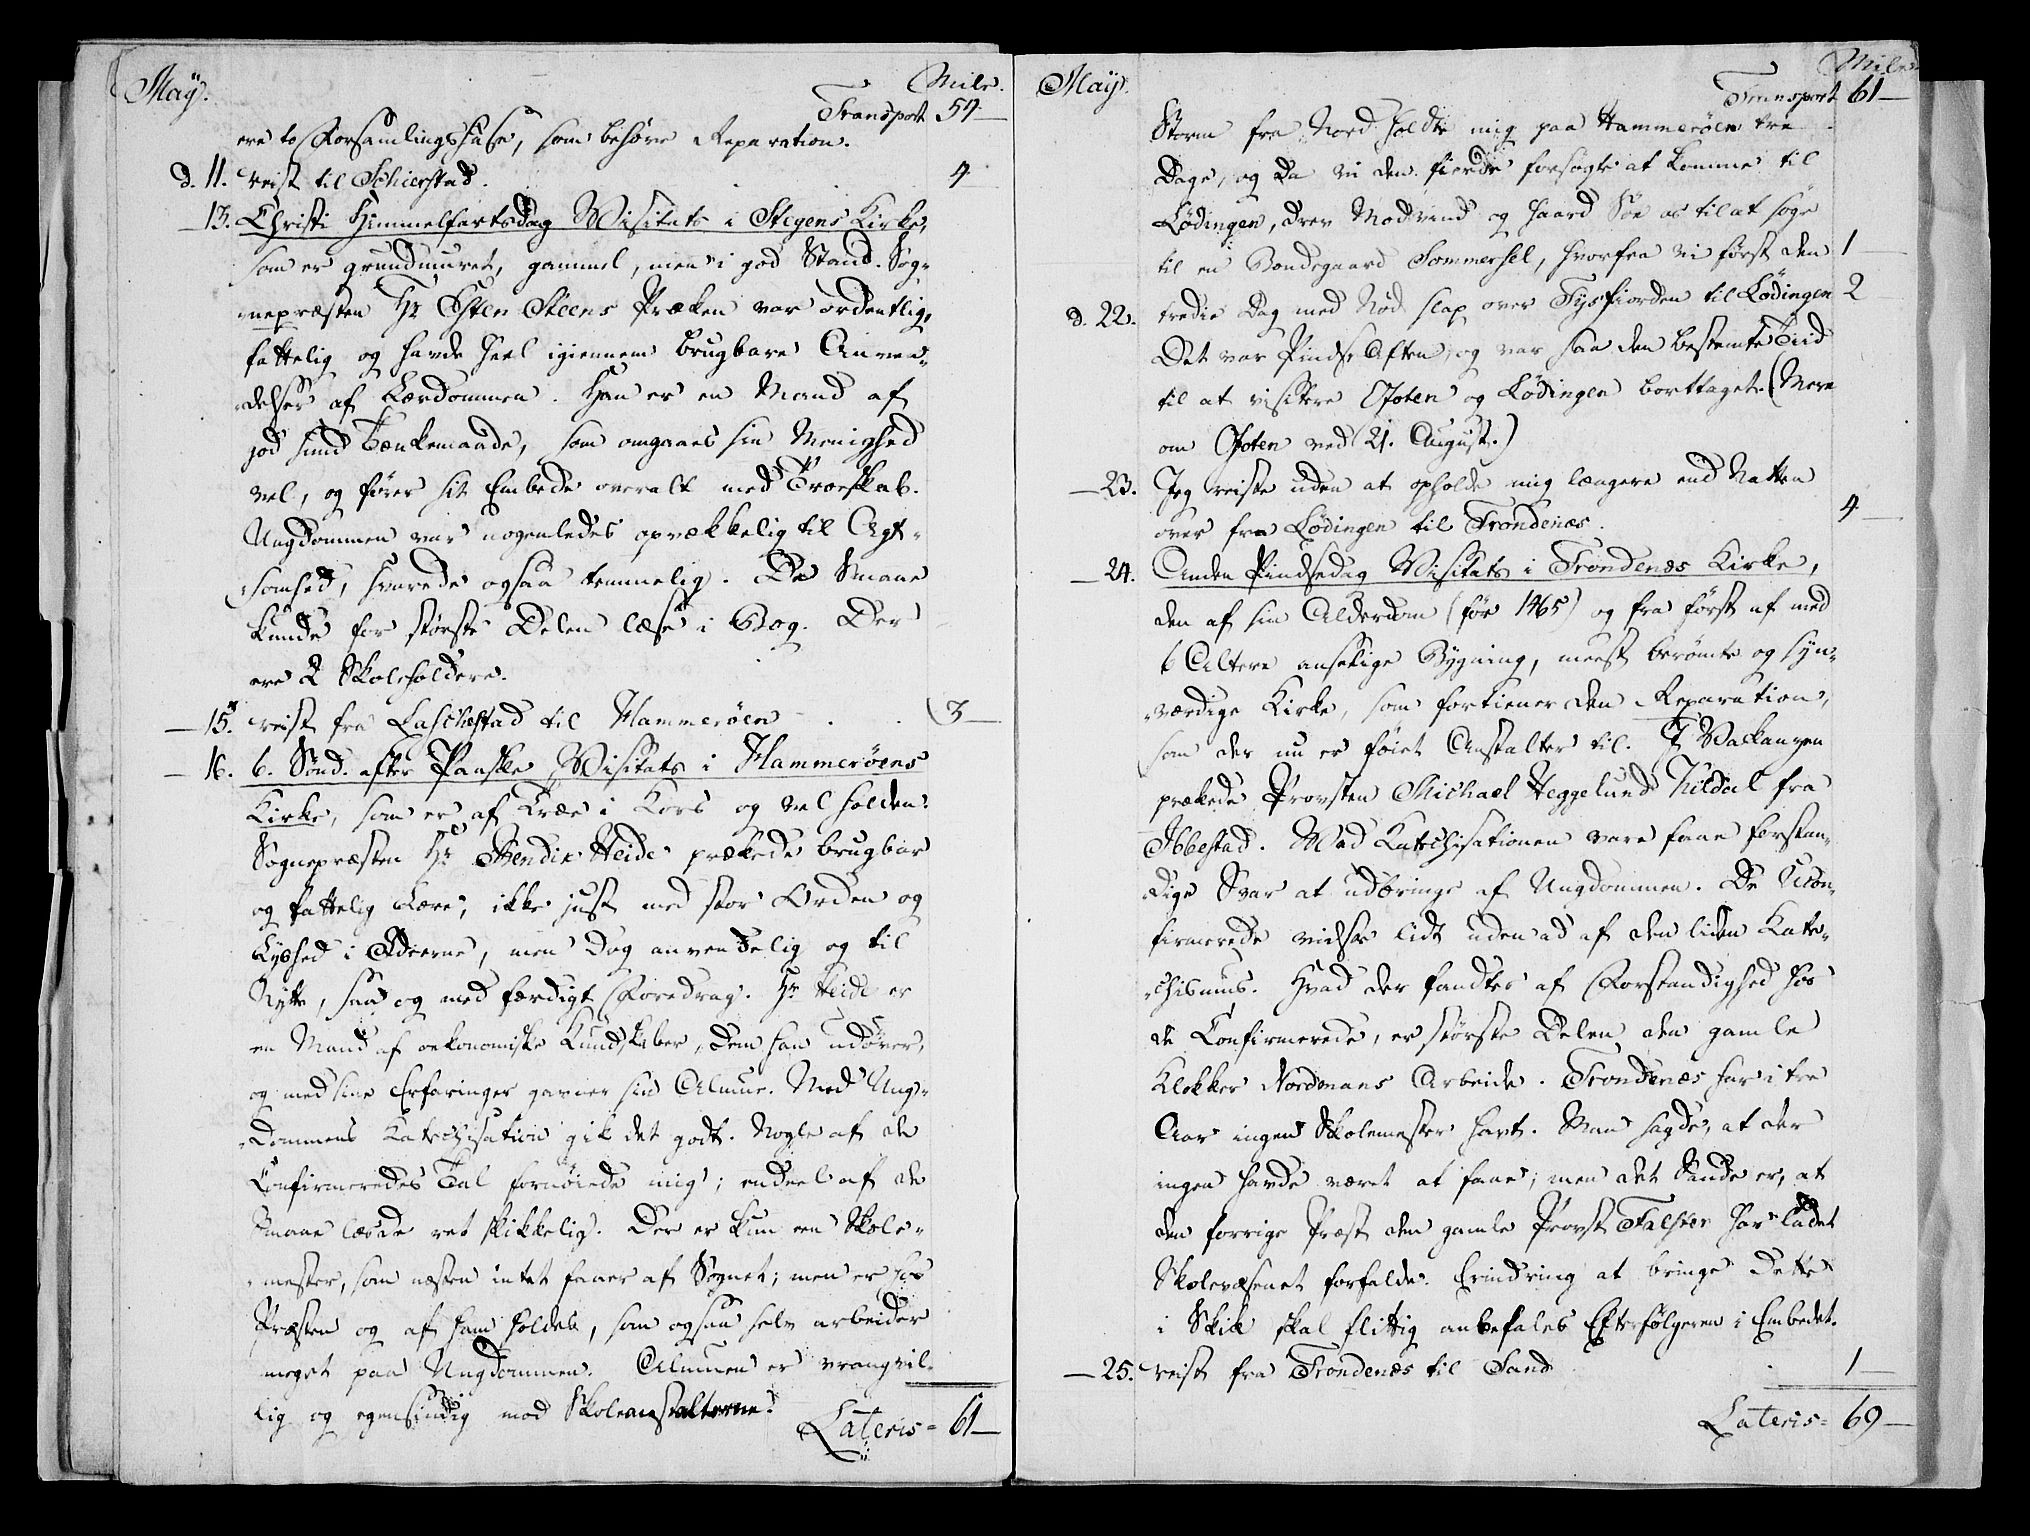 May.
Mile.
Transport 54.
ere to Forsamlingshuse, som behøve Reparation.
d. 11. reist til Schierstad. 4
— 13. Christi Himmelfartsdag Visitats i Stegens Kirke,
som er grundmuret, gammel, men i god Stand. Sog-
nepræsten Hr Sten Steens Præken var ordentlig,
fattelig og havde heel igiennem brugbare Anven-
delser af Lærdommen. Han er en Mand af
god sund Tænkemaade, som omgaaes sin Menighed
vel, og fører sit Embede overalt med Troeskab.
Ungdommen var nogenledes opvækkelig til Agt-
somhed, svarede ogsaa temmelig. De Smaae
kunde for største Delen læse i Bog. Der
ere 2 Skoleholdere.
— 15. reist fra Laschestad til Hammerøen . . 3 —
— 16. 6. Sønd. efter Paaske Visitats i Hammerøens
Kirke, som er af Træe i Kors og vel holden.
Sognepræsten Hr Bendix Heide prækede brugbar
og fattelig Lære, ikke just med stor Orden og
Lyshed i Ideerne, men dog anvendelig og til
Nytte, saa og med færdigt Foredrag. Hr Heide er
en Mand af oekonomiske Kundskaber, dem han udøver,
og med sine Erfaringer gavner sin Almue. Med Ung-
dommens Katechisation gik det godt. Nogle af de
Confirmeredes Tal fornøiede mig; endeel af de
Smaae læsde ret skikkelig. Der er kun een Skole-
mester, som næsten intet faaer af Sognet; men er hos
Præsten og af ham holdes, som ogsaa selv arbeider
meget paa Ungdommen. Almuen er vrangvil-
lig og egensindig mod Skoleanstalterne.
Lateris = 61 —
May.
Mile.
Transport 61 —
Storm fra Nord holdte mig paa Hammerøen tre
Dage, og da vi den fierde forsøgte at komme til
Lødingen, drev Modvind og haard Søe os til at søge
til en Bondegaard Sommersel, hvorfra vi først den 1 —
d. 22. tredie Dag med Nød slap over Tysfiorden til Lødingen 2
Det var Pindse Aften, og var saa den bestemte Tiid
til at visitere Ofoten og Lødingen borttaget. (Mere
om Ofoten ved 21. August.)
— 23. Jeg reiste uden at opholde mig længere end Natten
over fra Lødingen til Trondenæs. 4 —
— 24. Anden Pindsedag Visitats i Trondenæs Kirke,
den af sin Alderdom (før 1465) og fra først af med
6 Altere anselige Bygning, meest berømte og syn-
værdige Kirke, som fortiener den Reparation,
som der nu er føiet Anstalter til. I Vakanzen
prækede Provsten Michael Heggelund Kildal fra
Ibbestad. Ved Katechisationen vare faae forstan-
dige Svar at udbringe af Ungdommen. De Ucon-
firmerede vidste lidt uden ad af den liden Kate-
chismus. Hvad der fandtes af Forstandighed hos
de Confirmerede, er største Delen den gamle
Klokker Nordmans Arbeide. Trondenæs har i tre
Aar ingen Skolemester havt. Man sagde, at der
ingen havde været at faae; men det Sande er, at
den forrige Præst den gamle Provst Falster har ladet
Skolevæsenet forfalde. Erindring at bringe dette
i Skik skal flittig anbefales Efterfølgeren i Embedet.
— 25. reist fra Trondenæs til Sand . 1 —
Lateris = 69 —